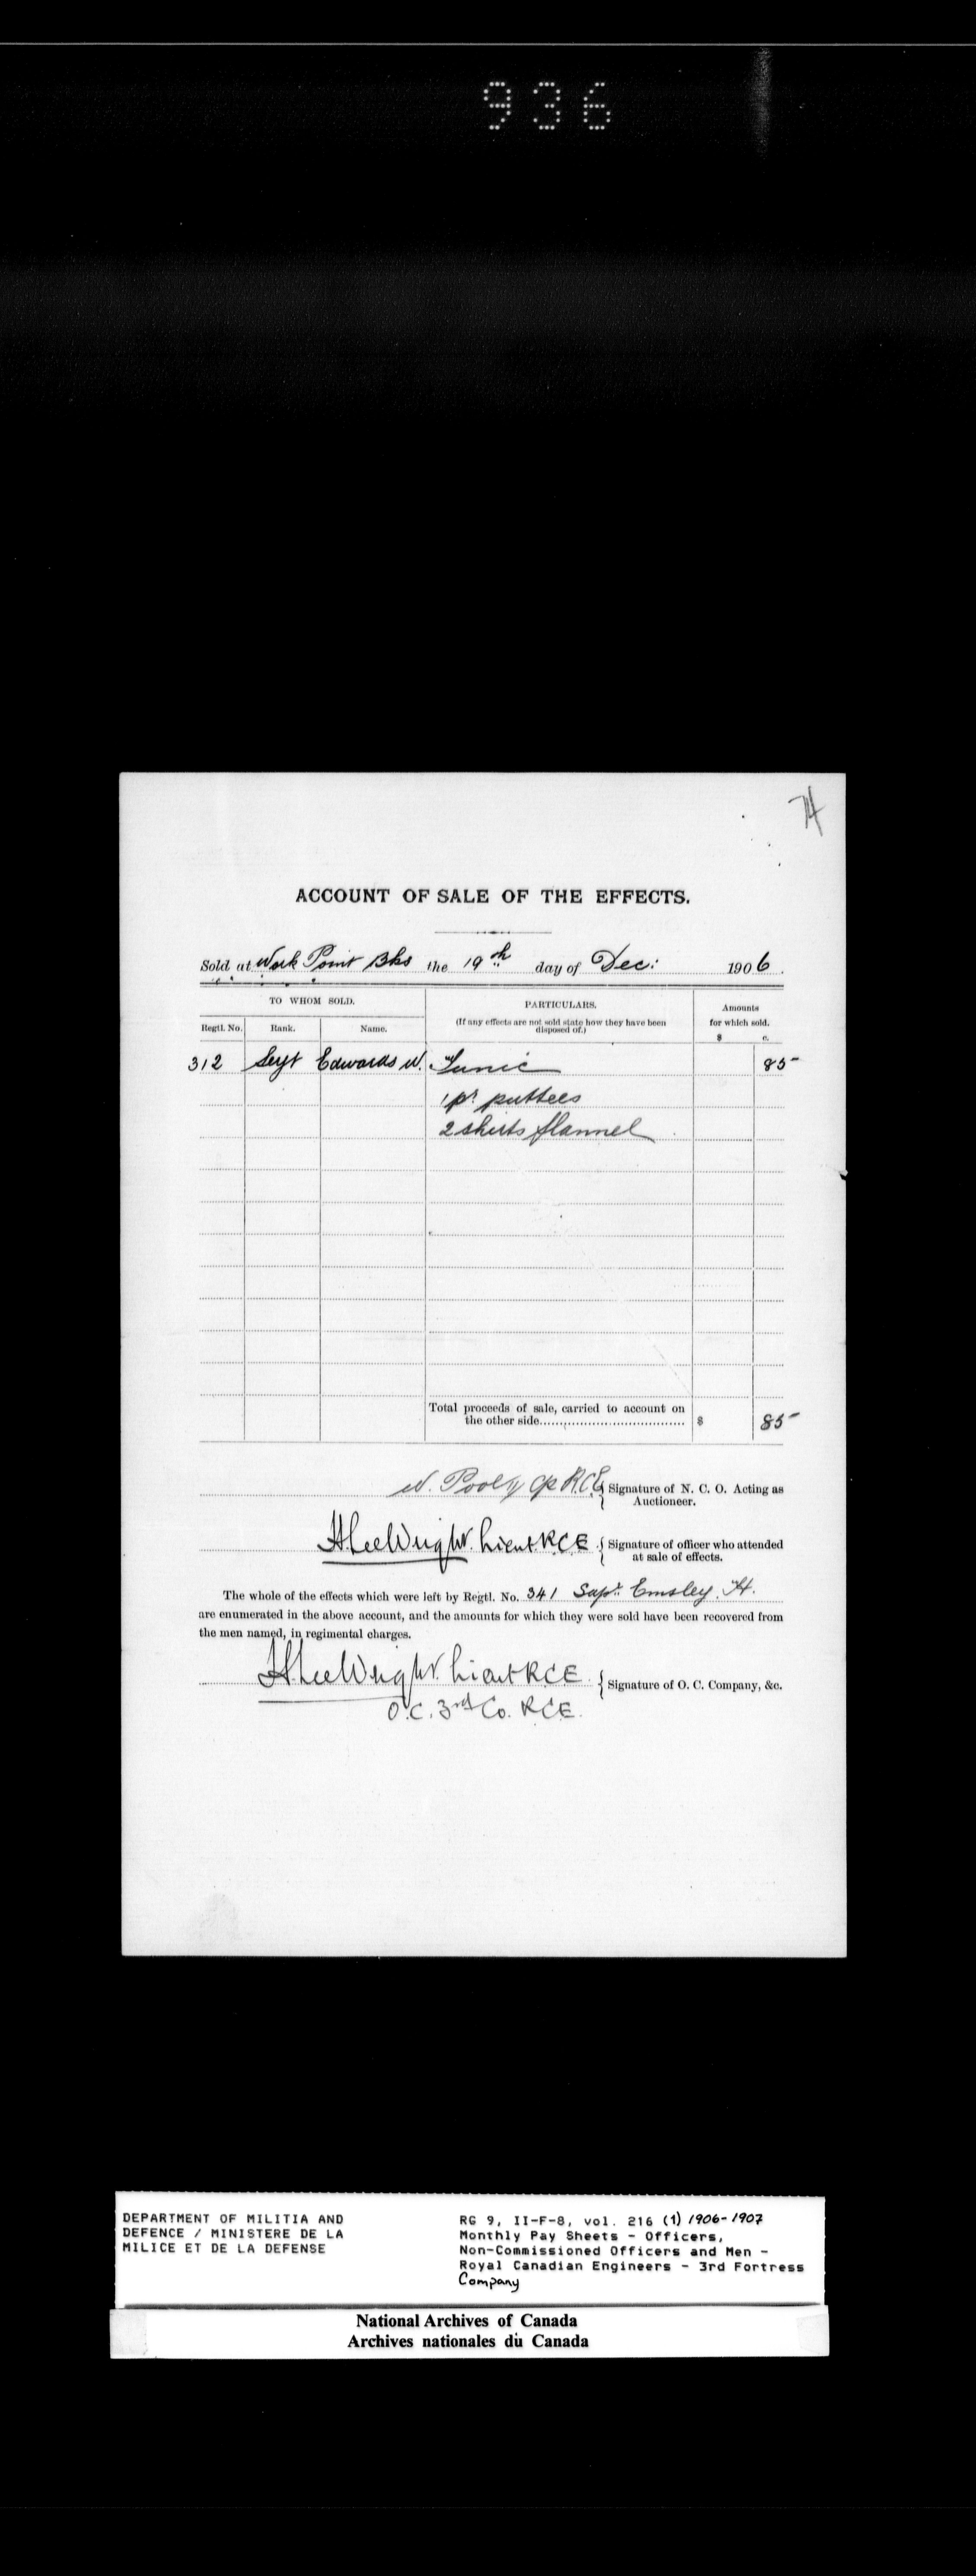 936
74
ACCOUNT OF SALE OF THE EFFECTS.
Sold at Work Point Bks the 19th day of Dec: 1906.
TO WHOM SOLD. PARTICULARS. Amounts
Regtl. No. Rank. Name. (If any effects are not sold state how they have been disposed of.) for which sold.
$ c.
312 Sergt Edwards W. Tunic 85
1 pr puttees
2 shirts flannel
Total proceeds of sale, carried to account on
the other side. $ 85
W. Pooley Cpl R.C.E. } Signature of N. C. O. Acting as
Auctioneer.
H Lee Wright. Lieut RCE { Signature of officer who attended
at sale of effects.
The whole of the effects which were left by Regtl. No. 341 Sapr. Emsley. H.
are enumerated in the above account, and the amounts for which they were sold have been recovered from
the men named, in regimental charges.
H Lee Wright. Lieut RCE { Signature of O. C. Company, &c.
O.C. 3rd Co. RCE.
DEPARTMENT OF MILITIA AND
DEFENCE / MINISTERE DE LA
MILICE ET DE LA DEFENSE
RG 9, II-F-8, vol. 216 (1) 1906-1907
Monthly Pay Sheets - Officers,
Non-Commissioned Officers and Men -
Royal Canadian Engineers - 3rd Fortress
Company
National Archives of Canada
Archives nationales du Canada